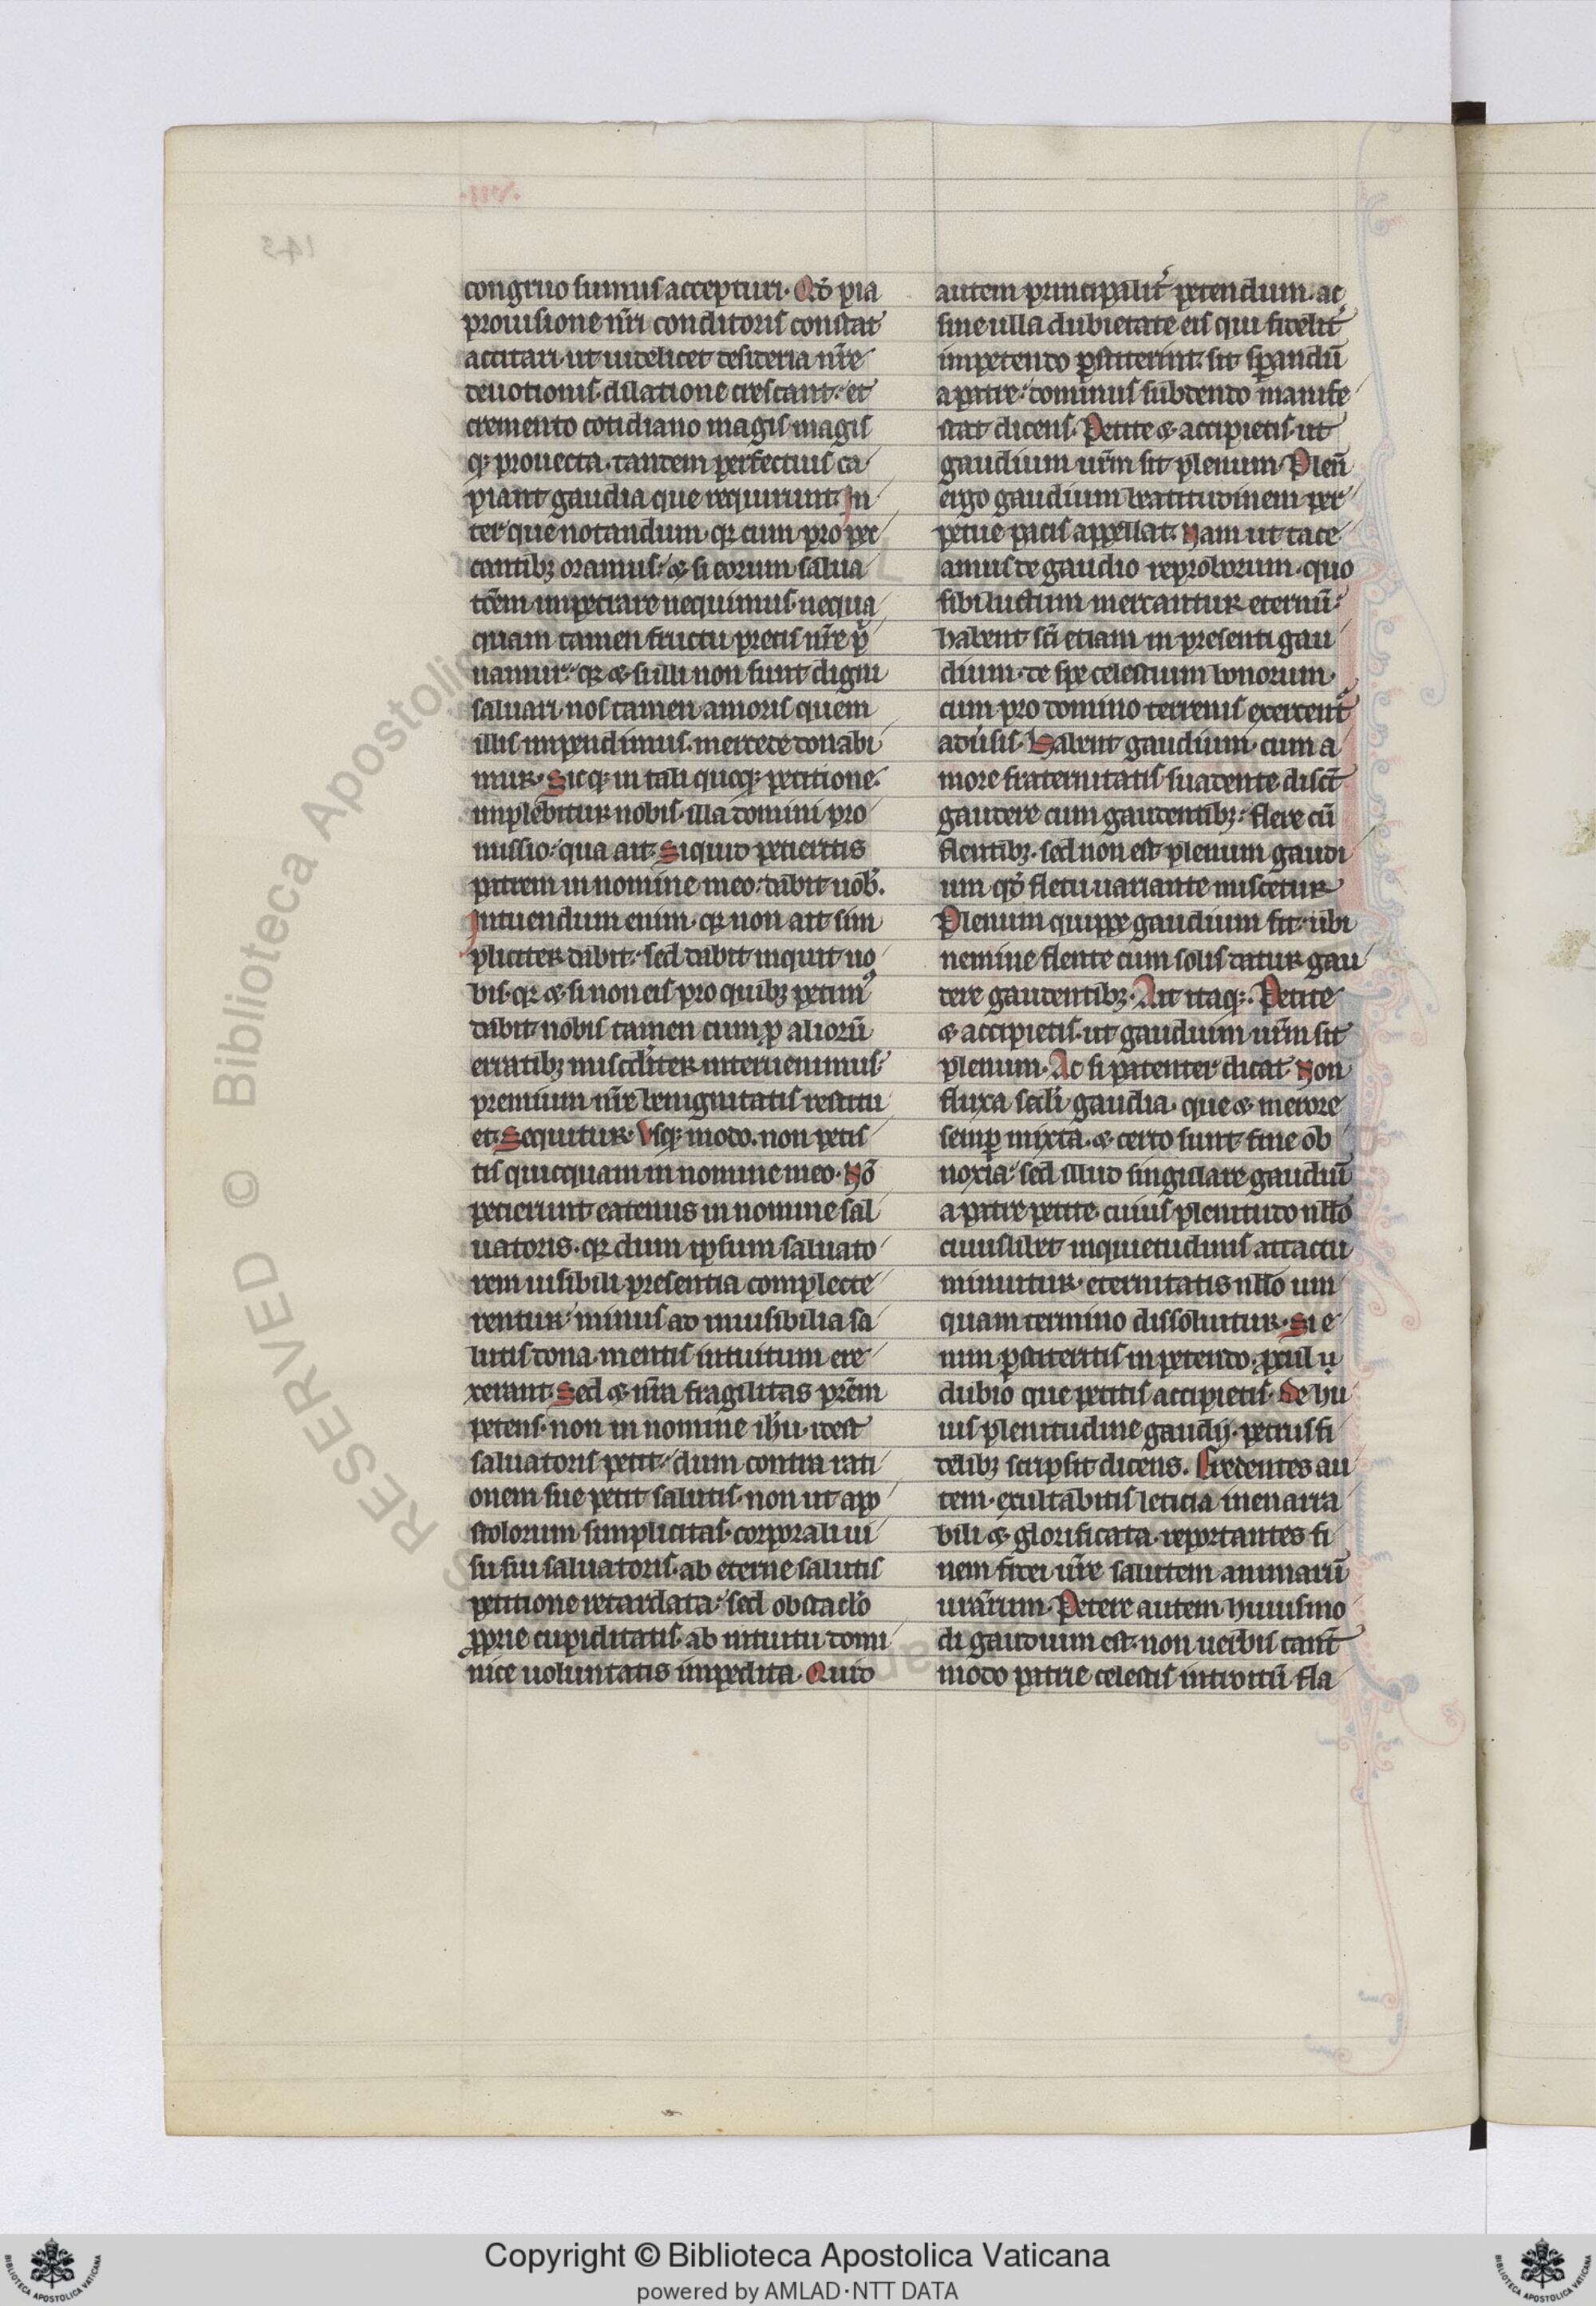 congruo sumus accepturi. Qd̄ pia
prouisione nr̄i conditoris constat
actitari ut uidelicet desideria nr̄e
deuotionis dilatione crescant. et
cremento cotidiano magis magis
q; prouecta. tandem perfectius ca
piant gaudia que requirunt. In
ter que notandum. qꝛ cum pro pec
cantibꝫ oramus. ⁊ si eorum salua
tōem impetrare nequimus. nequa
quam tamen fructu precis nr̄e p̱
uamur. qꝛ ⁊ si illi non sunt digni
saluari. nos tamen amoris quem
illis impendimus. mercede donabi
mur. Sicq; in tali quoq; petitione.
implebitur nobis. illa domini pro
missio. qua ait. Si quid petieritis
patrem in nomine meo. dabit uob̄.
Intuendum enim. qꝛ non ait sim
pliciter dabit. sed dabit inquit uo
bis. qꝛ ⁊ si non eis pro quibꝫ petimꝰ
dabit nobis tamen cum ꝓ aliorū
erratibꝫ misc̄diter interuenimus.
premium nr̄e benignitatis restitu
et. Sequitur. Vsq; modo. non petis
tis quicquam in nomine meo. Nō
petierunt eatenus in nomine sal
uatoris. qꝛ dum ipsum saluato
rem uisibili presentia complecte
rentur. minus ad inuisibilia sa
lutis dona. mentis intuitum ere
xerant. Sed ⁊ nr̄a fragilitas pr̄em
petens. non in nomine ih̄u. idest
saluatoris petit. dum contra rati
onem sue petit salutis. non ut apo
stolorum simplicitas. corporali ui
su sui saluatoris. ab eterne salutis
petitione retardata. sed obstaclo
ꝓprie cupiditatis. ab intuitu domi
nice uoluntatis impedita. Quid
autem principalit̄ petendum. ac
sine ulla dubietate eis qui fidelit̄
in petendo ꝑstiterint. sit sꝑandū
a patre. dominus subdendo manife
stat dicens. Petite ⁊ accipietis. ut
gaudium ur̄m sit plenum. Plenū
ergo gaudium beatitudinem per
petue pacis appellat. Nam ut tace
amus de gaudio reproborum. quo
sibi luctum mercantur eternū.
habent sc̄i etiam in presenti gau
dium. de spe celestium bonorum.
cum pro domino terrenis exercent̄
adūsis. Habent gaudium. cum a
more fraternitatis suadente disct̄
gaudere cum gaudentibꝫ. flere cū
flentibꝫ. sed non est plenum gaudi
um qd̄ fletu uariante miscetur
Plenum quippe gaudium fit. ubi
nemine flente cum solis datur gau
dere gaudentibꝫ. Ait itaq;. Petite
⁊ accipietis. ut gaudium ur̄m sit
plenum. Ac si patenter dicat. Non
fluxa secl̄i gaudia. que ⁊ merore
semꝑ mixta. ⁊ certo sunt fine ob
noxia. sed illud singulare gaudiū
a patre petite. cuius plenitudo nllo
cuiuslibet inquietudinis attactu
minuitur. eternitatis nllo um
quam termino dissoluitur. Si e
nim ꝑstiteritis in petendo. ꝓcul u
dubio que petitis accipietis. De hu
ius plenitudine gaudij. petrus fi
delibꝫ scripsit dicens. Credentes au
tem. exultabitis leticia inenarra
bili ⁊ glorificata. reportantes fi
nem fidei ur̄e salutem animarū
urārum. Petere autem huiusmo
di gaudium est. non uerbis tant̄
modo patrie celestis introitū fla
Copyright © Biblioteca Apostolica Vaticana
powered by AMLAD·NTT DATA